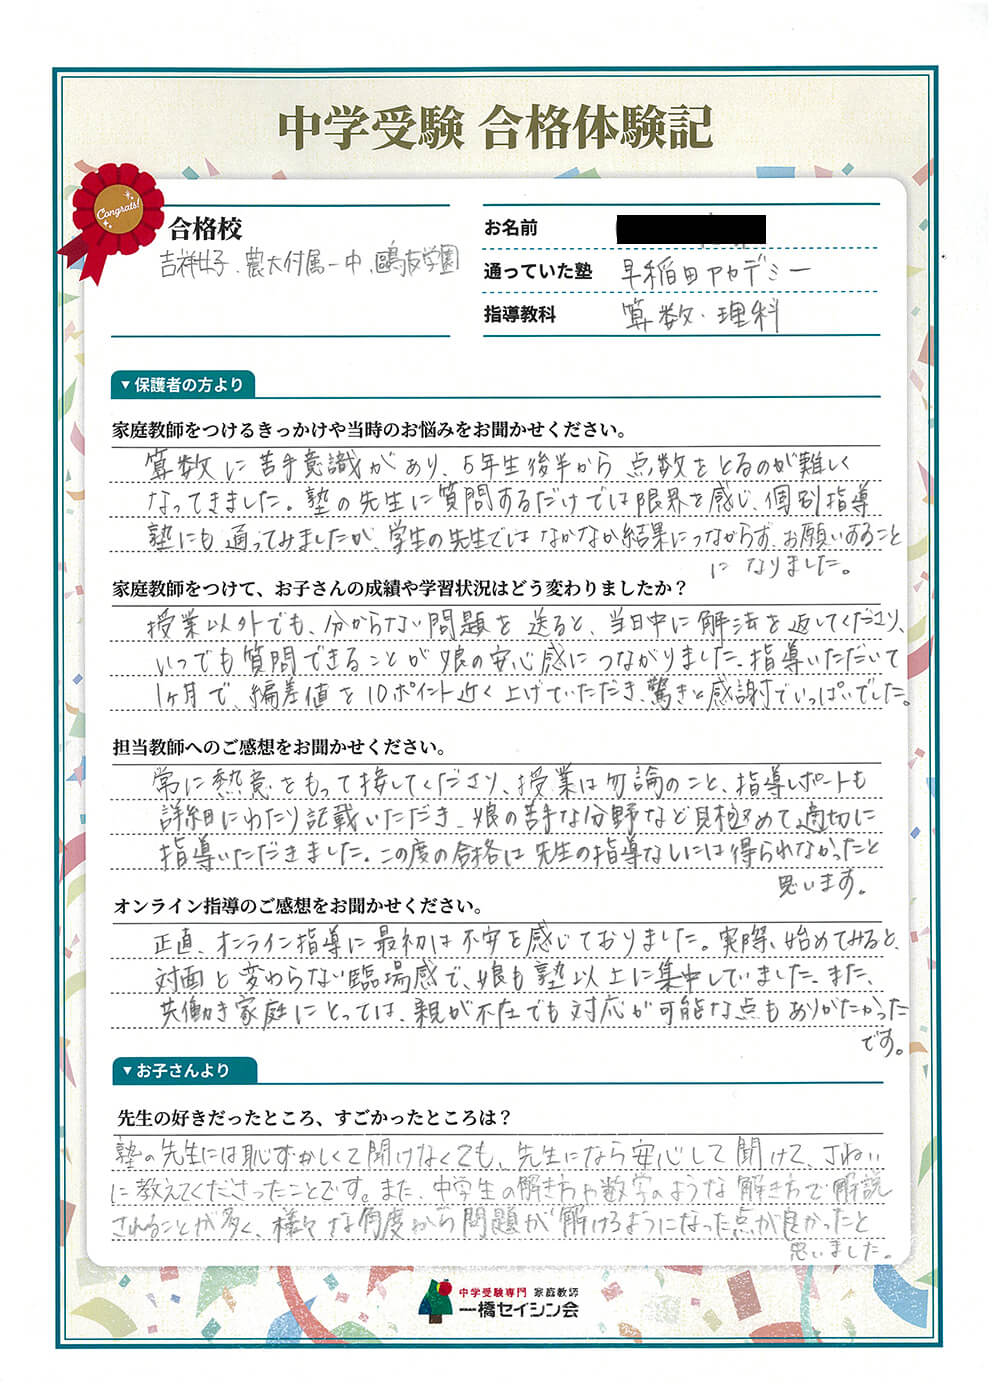 中学受験 合格体験記
Congrats!
合格校
吉祥女子、農大付属一中、鷗友学園
お名前
通っていた塾 早稲田アカデミー
指導教科 算数・理科
▼保護者の方より
家庭教師をつけるきっかけや当時のお悩みをお聞かせください。
算数に苦手意識があり、5年生後半から点数をとるのが難しく
なってきました。塾の先生に質問するだけでは限界を感じ、個別指導
塾にも通ってみましたが、学生の先生ではなかなか結果につながらず、お願いすること
になりました。
家庭教師をつけて、お子さんの成績や学習状況はどう変わりましたか？
授業以外でも、分からない問題を送ると、当日中に解法を返してくださり、
いつでも質問できることが娘の安心感につながりました。指導いただいて
1ヶ月で、偏差値を10ポイント近く上げていただき、驚きと感謝でいっぱいでした。
担当教師へのご感想をお聞かせください。
常に熱意をもって接してくださり、授業は勿論のこと、指導レポートも
詳細にわたり記載いただき、娘の苦手な分野など見極めて適切に
指導いただきました。この度の合格は先生の指導なしには得られなかったと
思います。
オンライン指導のご感想をお聞かせください。
正直、オンライン指導に最初は不安を感じておりました。実際、始めてみると、
対面と変わらない臨場感で、娘も塾以上に集中していました。また、
共働き家庭にとっては、親が不在でも対応が可能な点もありがたかった
です。
▼お子さんより
先生の好きだったところ、すごかったところは？
塾の先生には恥ずかしくて聞けなくても、先生になら安心して聞けて、ていねい
に教えてくださったことです。また、中学生の解き方や数学のような解き方で解説
されることが多く、様々な角度から問題が解けるようになった点が良かったと
思いました。
中学受験専門 家庭教師
一橋セイシン会